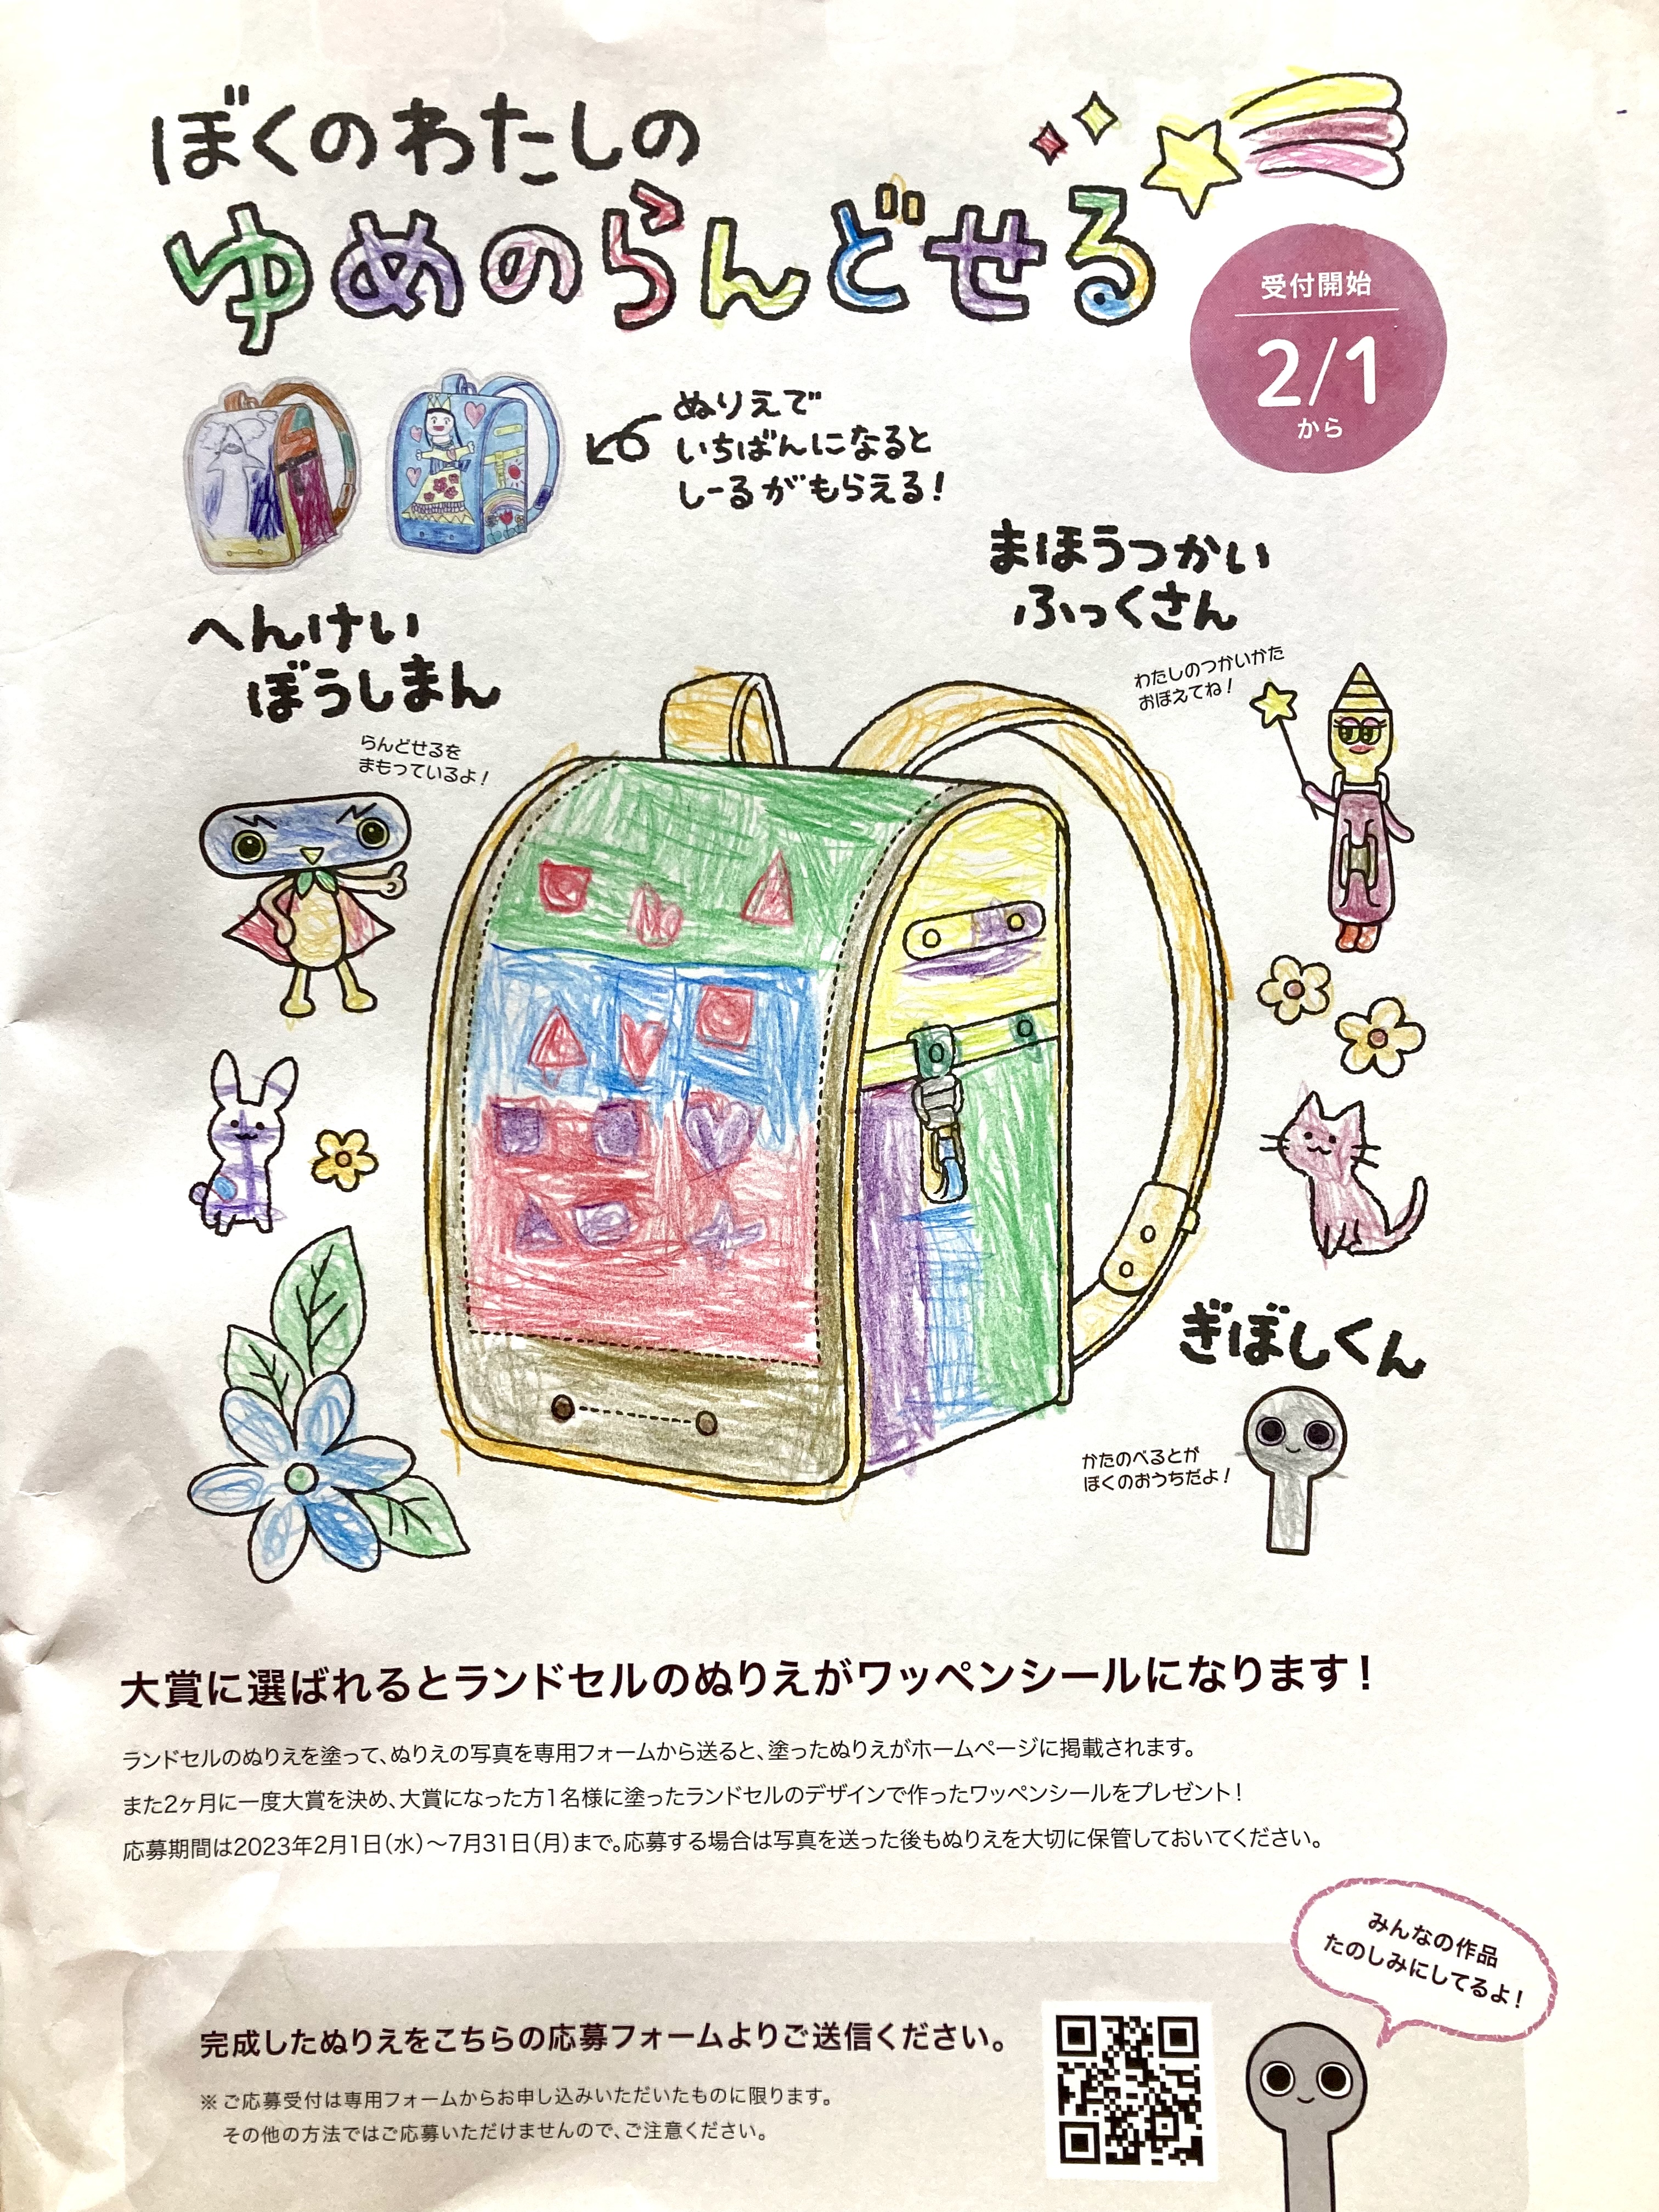 ぼくのわたしの
ゆめのらんどせる
受付開始
2/1
から
ぬりえで
いちばんになると
しーるがもらえる!
まほうつかい
ふっくさん
わたしのつかいかた
おぼえてね!
へんけい
ぼうしまん
らんどせるを
まもっているよ!
ぎぼしくん
かたのべるとが
ぼくのおうちだよ!
大賞に選ばれるとランドセルのぬりえがワッペンシールになります!
ランドセルのぬりえを塗って、ぬりえの写真を専用フォームから送ると、塗ったぬりえがホームページに掲載されます。
また2ヶ月に一度大賞を決め、大賞になった方1名様に塗ったランドセルのデザインで作ったワッペンシールをプレゼント!
応募期間は2023年2月1日(水)〜7月31日(月)まで。応募する場合は写真を送った後もぬりえを大切に保管しておいてください。
みんなの作品
たのしみにしてるよ!
完成したぬりえをこちらの応募フォームよりご送信ください。
※ご応募受付は専用フォームからお申し込みいただいたものに限ります。
その他の方法ではご応募いただけませんので、ご注意ください。